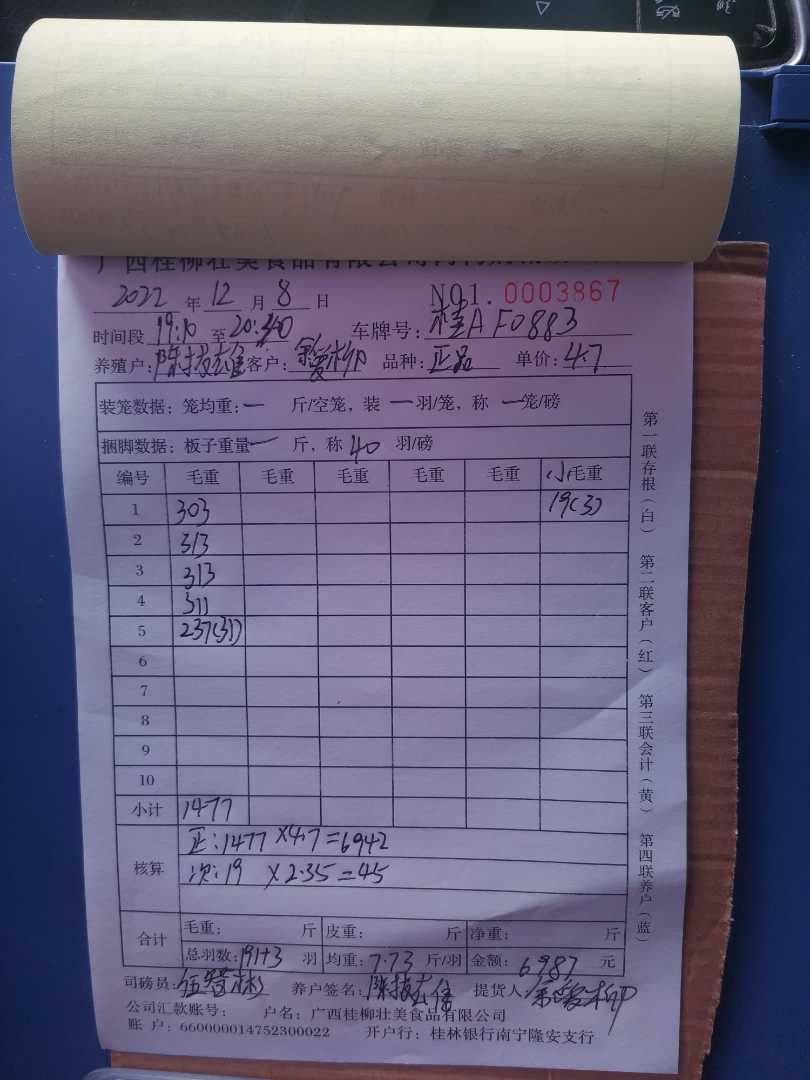 广西桂柳壮美食品有限公司
2022 年 12 月 8 日 NO1. 0003867
时间段 19:10 至 20:30 车牌号: 桂A F0883
养殖户: 陈 雄 客户: 柳 品种: 正品 单价: 4.7
装笼数据: 笼均重: 一 斤/空笼, 装 一 羽/笼, 称 一 笼/磅
捆脚数据: 板子重量 一 斤, 称 40 羽/磅
编号 毛重 毛重 毛重 毛重 毛重 小毛重
1 303 19(3)
2 313
3 313
4 311
5 237(31)
6
7
8
9
10
小计 1477
核算 正: 1477 ×4.7=6942
次: 19 ×2.35=45
合计 毛重: 斤 皮重: 斤 净重: 斤
总羽数: 191+3 羽 均重: 7.73 斤/羽 金额: 6987 元
司磅员: 伍 彬 养户签名: 陈 雄 提货人 柳
公司汇款账号: 户名: 广西桂柳壮美食品有限公司
账 户: 660000014752300022 开户行: 桂林银行南宁隆安支行
第一联存根(白) 第二联客户(红) 第三联会计(黄) 第四联养户(蓝)